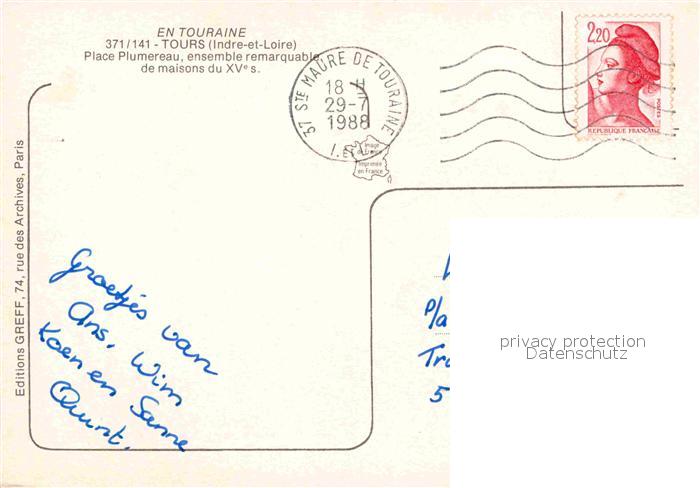 EN TOURAINE
371/141 - TOURS (Indre-et-Loire)
Place Plumereau, ensemble remarquable
de maisons du XVe s.
37 STE MAURE DE TOURAINE
18 H
29-7
1988
I. ET
Image
de France
Imprimée
en France
2,20
POSTES
REPUBLIQUE FRANÇAISE
Editions GREFF, 74, rue des Archives, Paris
Groetjes van
Ans, Wim
Koen en Sanne
Quint.
p/a
Tr
5
privacy protection
Datenschutz